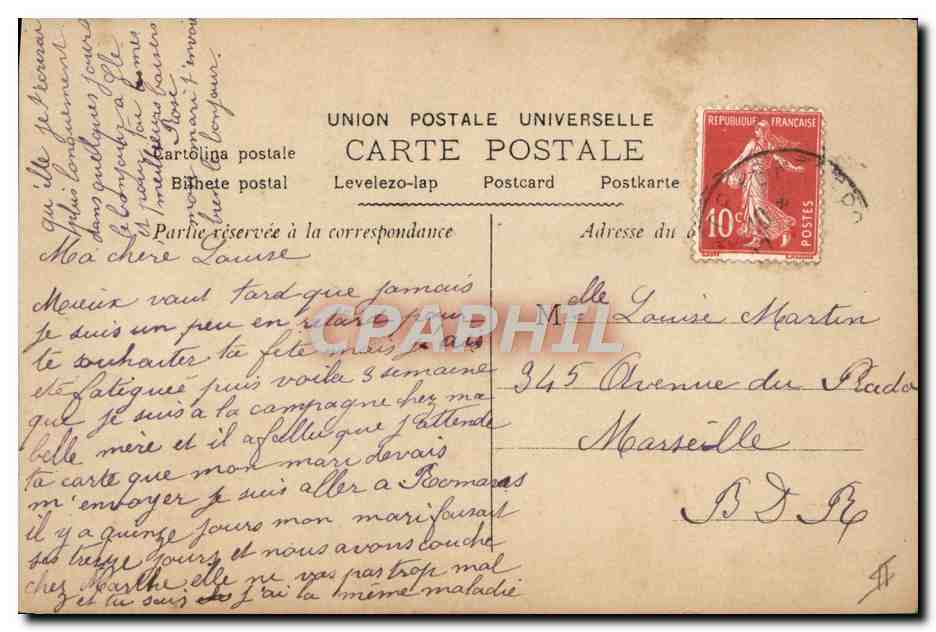 UNION POSTALE UNIVERSELLE
Cartolina postale
CARTE POSTALE
Bilhete postal
Levelezo-lap
Postcard
Postkarte
Partie réservée à la correspondance
Adresse du
REPUBLIQUE FRANÇAISE
10c
POSTES
CPAPHIL
Ma chere Louise
Mieux vaut tard que jamais
je suis un peu en retard pour
te souhaiter ta fete mais j'ais
eté fatigueé puis voila 3 semaine
que je suis a la campagne chez ma
belle mère et il a fallu que j'attende
ta carte que mon mari devais
m'envoyer je suis aller a Romans
il y a quinze jours mon mari faisait
ses treize jours et nous avons couche
chez Marthe elle ne vas pas trop mal
et tu sais j'ai la meme maladie
qu'elle je t'ecrirai
plus longuement
dans quelques jours
le bonjour a
et pour toi mes
meilleurs baisers
Rose
mon mari t'envoi
bien le bonjour
Mdlle Louise Martin
345 Avenue du Prado
Marseille
B D R